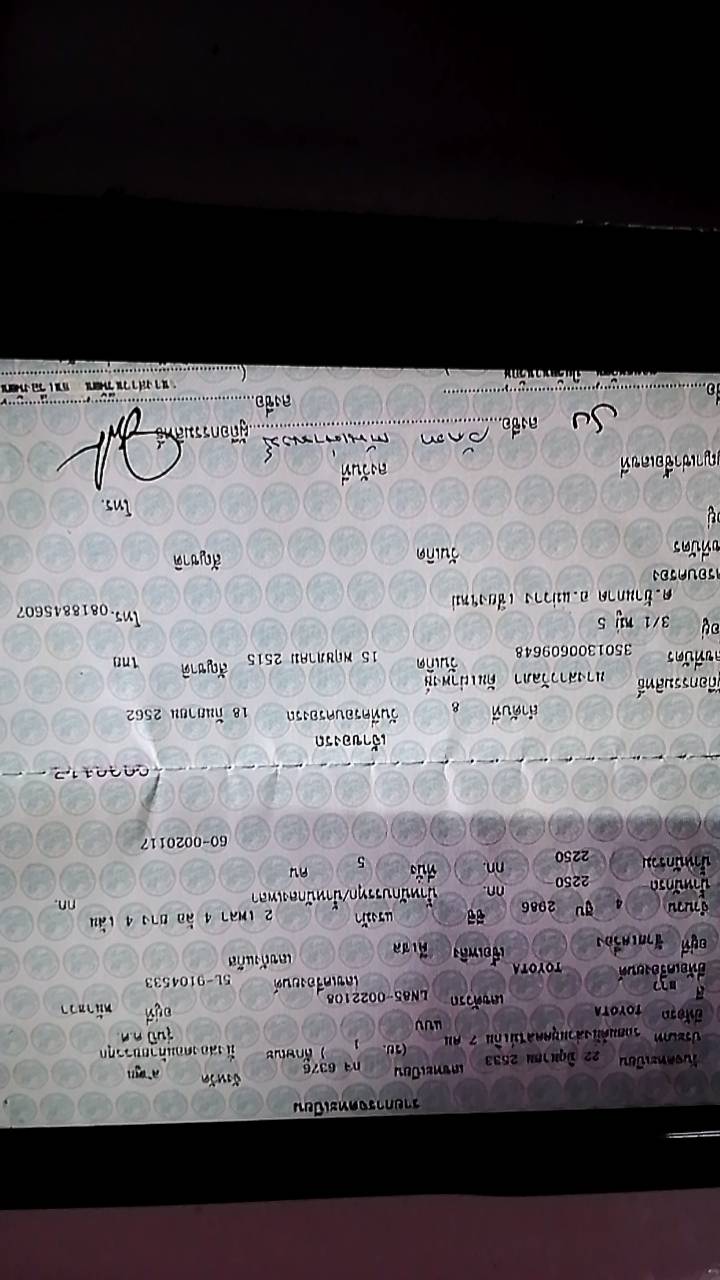 รายการจดทะเบียน
วันจดทะเบียน 22 มิถุนายน 2533 เลขทะเบียน กจ 6376 จังหวัด ลำพูน
ประเภท รถยนต์นั่งส่วนบุคคลไม่เกิน 7 คน (รย. 1 ) ลักษณะ นั่งสองตอนท้ายบรรทุก
ยี่ห้อรถ TOYOTA แบบ รุ่นปี ค.ศ.
สี ขาว เลขตัวรถ LN85-0022108 อยู่ที่ หน้าขวา
ยี่ห้อเครื่องยนต์ TOYOTA เลขเครื่องยนต์ 5L-9104533
อยู่ที่ ซ้ายเครื่อง เชื้อเพลิง ดีเซล เลขถังแก๊ส
จำนวน 4 สูบ 2986 ซีซี แรงม้า 2 เพลา 4 ล้อ ยาง 4 เส้น
น้ำหนักรถ 2250 กก. น้ำหนักบรรทุก/น้ำหนักลงเพลา กก.
น้ำหนักรวม 2250 กก. ที่นั่ง 5 คน
60-0020117
เจ้าของรถ
ลำดับที่ 8 วันที่ครอบครองรถ 18 กันยายน 2562
ผู้ถือกรรมสิทธิ์ นางสาววิลภา
เลขที่บัตร 3501300609648 วันเกิด 15 พฤษภาคม 2515 สัญชาติ ไทย
ที่อยู่ 3/1 หมู่ 5
ต.บ้านกาด อ.แม่วาง เชียงใหม่ โทร.0818845607
ผู้ครอบครอง
เลขที่บัตร วันเกิด สัญชาติ
ที่อยู่ โทร.
สัญญาเช่าซื้อเลขที่ ลงวันที่
ลงชื่อ ผู้ถือกรรมสิทธิ์
ลงชื่อ